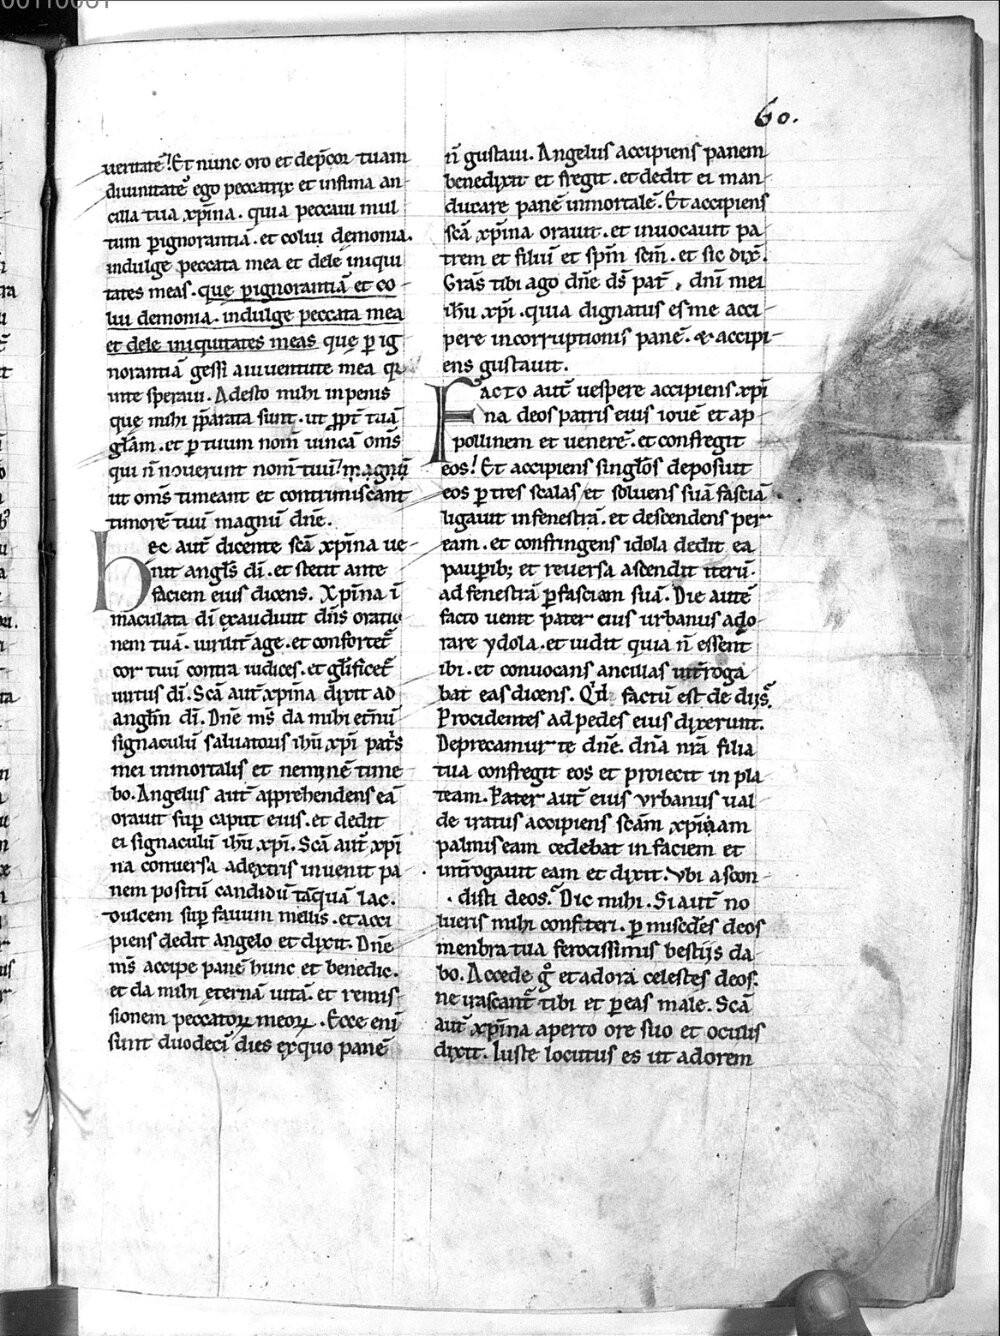 60.
ueritatē! Et nunc oro et dep̄cor tuam
diuinitatē ego peccatrix et infima an
cilla tua xp̄ina. quia peccaui mul
tum p ignorantiā. et colui demonia.
indulge peccata mea et dele iniqui
tates meas. que p ignorantiā et co
lui demonia. indulge peccata mea
et dele iniquitates meas que p ig
norantiā gessi a iuuentute mea q̄
in te speraui. Adesto mihi in penis
que mihi p̄parata sunt. ut pp̄t tuā
gl̄am. et p tuum nom̄ uincā om̄s
qui n̄ nouerunt nom̄ tuū! magnū
ut om̄s timeant et contrimiscant
timorē tuū magnū dn̄e.
Hec aut̄ dicente sc̄a xp̄ina ue-
nit angl̄s dī. et stetit ante
faciem eius dicens. Xp̄ina ī
maculata dī exaudiuit dn̄s oratio
nem tuā. uirilit̄ age. et confortet̄
cor tuū contra iudices. et gl̄ificet̄
uirtus dī. Sc̄a aut̄ xp̄ina dixit ad
angl̄m dī. Dn̄e m̄s da mihi et̄nū
signaculū saluatoris ih̄u xp̄i pat̄s
mei inmortalis et neminē time
bo. Angelus aut̄ apprehendens eā
orauit sup caput eius. et dedit
ei signaculū ih̄u xp̄i. Sc̄a aut̄ xp̄i
na conuersa a dextris inuenit pa
nem positū candidū tāquā lac.
dulcem sup fauum mellis. et acci
piens dedit angelo et dixit. Dn̄e
m̄s accipe panē hunc et benedic.
et da mihi eternā uitā. et remis
sionem peccatoꝝ meoꝝ. Ecce eni
sunt duodeci dies ex quo panē
n̄ gustaui. Angelus accipiens panem
benedixit et fregit. et dedit ei man
ducare panē inmortalē. Et accipiens
sc̄a xp̄ina orauit. et inuocauit pa
trem et filiū et sp̄m sc̄m. et sic dix̄.
Gr̄as tibi ago dn̄e d̄s pat̄, dn̄i mei
ih̄u xp̄i. quia dignatus es me acci
pere incorruptionis panē. & accipi
ens gustauit.
Facto aut̄ uespere accipiens xp̄i
na deos patris eius iouē et ap
pollinem et uenerē. et confregit
eos! Et accipiens singl̄os deposuit
eos p tres scalas et soluens suā fasciā
ligauit in fenestrā. et descendens per
eam. et confringens idola dedit ea
paupib; et reuersa ascendit iterū.
ad fenestrā p fasciam suā. Die autē
facto uenit pater eius urbanus ado
rare ydola. et uidit quia n̄ essent
ibi. et conuocans ancillas int̄roga
bat eas dicens. Qd̄ factū est de diis.
Procidentes ad pedes eius dixerunt.
Deprecamur te dn̄e. dn̄a nr̄a filia
tua confregit eos et proiecit in pla
team. Pater aut̄ eius vrbanus ual
de iratus accipiens sc̄am xp̄inam
palmis eam cedebat in faciem et
int̄rogauit eam et dixit. Vbi ascon
disti deos. Dic mihi. Si aut̄ no
lueris mihi confiteri. p misc̄des deos
menbra tua ferocissimis bestiis da
bo. Accede g̊ et adora celestes deos.
ne irascant̄ tibi et peas male. Sc̄a
aut̄ xp̄ina aperto ore suo et oculis
dixit. Iuste locutus es ut adorem